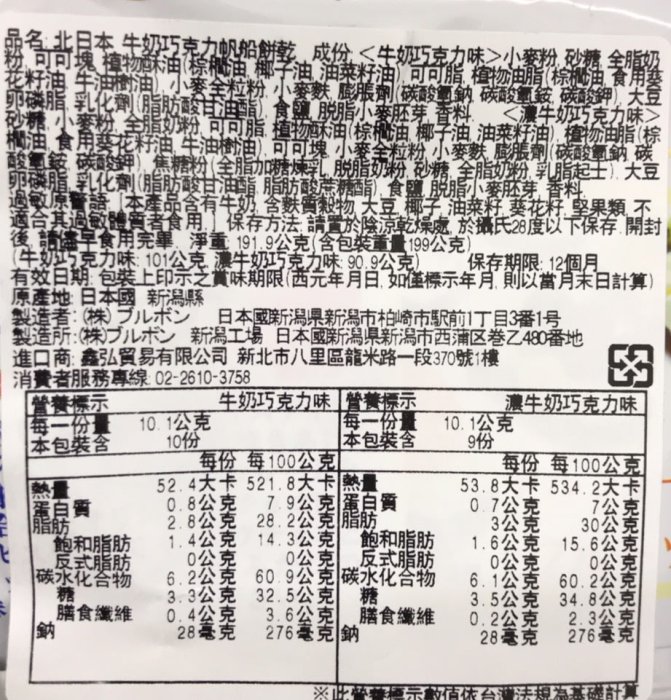 品名: 北日本 牛奶巧克力帆船餅乾 成份 <牛奶巧克力味>小麥粉, 砂糖, 全脂奶
粉, 可可塊, 植物酥油(棕櫚油, 椰子油, 油菜籽油), 可可脂, 植物油脂(棕櫚油, 食用葵
花籽油, 牛油樹油), 小麥全粒粉, 小麥麩, 膨脹劑(碳酸氫鈉, 碳酸氫銨, 碳酸鉀), 大豆
卵磷脂, 乳化劑(脂肪酸甘油酯), 食鹽, 脱脂小麥胚芽, 香料. <濃牛奶巧克力味>
砂糖, 小麥粉, 全脂奶粉, 可可脂, 植物酥油(棕櫚油, 椰子油, 油菜籽油), 植物油脂(棕
櫚油, 食用葵花籽油, 牛油樹油), 可可塊, 小麥全粒粉, 小麥麩, 膨脹劑(碳酸氫鈉, 碳
酸氫銨, 碳酸鉀), 焦糖粉(全脂加糖煉乳, 脱脂奶粉, 砂糖, 全脂奶粉, 乳脂起士), 大豆
卵磷脂, 乳化劑(脂肪酸甘油酯, 脂肪酸蔗糖酯), 食鹽, 脱脂小麥胚芽, 香料
過敏原警語: 本產品含有牛奶, 含麩質穀物, 大豆, 椰子, 油菜籽, 葵花籽, 堅果類, 不
適合其過敏體質者食用. 保存方法: 請置於陰涼乾燥處, 於攝氏28度以下保存, 開封
後, 請儘早食用完畢. 淨重: 191.9公克(含包裝重量199公克)
(牛奶巧克力味: 101公克, 濃牛奶巧克力味: 90.9公克) 保存期限: 12個月
有效日期: 包裝上印示之賞味期限(西元年月日, 如僅標示年月, 則以當月末日計算)
原產地: 日本國 新潟縣
製造者: (株)ブルボン 日本國新潟県新潟市柏崎市駅前1丁目3番1号
製造所: (株)ブルボン 新潟工場 日本國新潟県新潟市西蒲区巻乙480番地
進口商: 鑫弘貿易有限公司 新北市八里區龍米路一段370號1樓
消費者服務專線: 02-2610-3758
營養標示 牛奶巧克力味
每一份量 10.1公克
本包裝含 10份
每份 每100公克
熱量 52.4大卡 521.8大卡
蛋白質 0.8公克 7.9公克
脂肪 2.8公克 28.2公克
飽和脂肪 1.4公克 14.3公克
反式脂肪 0公克 0公克
碳水化合物 6.2公克 60.9公克
糖 3.3公克 32.5公克
膳食纖維 0.4公克 3.6公克
鈉 28毫克 276毫克
營養標示 濃牛奶巧克力味
每一份量 10.1公克
本包裝含 9份
每份 每100公克
熱量 53.8大卡 534.2大卡
蛋白質 0.7公克 7公克
脂肪 3公克 30公克
飽和脂肪 1.6公克 15.6公克
反式脂肪 0公克 0公克
碳水化合物 6.1公克 60.2公克
糖 3.5公克 34.8公克
膳食纖維 0.2公克 2.3公克
鈉 28毫克 276毫克
※此營養標示數值依台灣法規為基礎計算